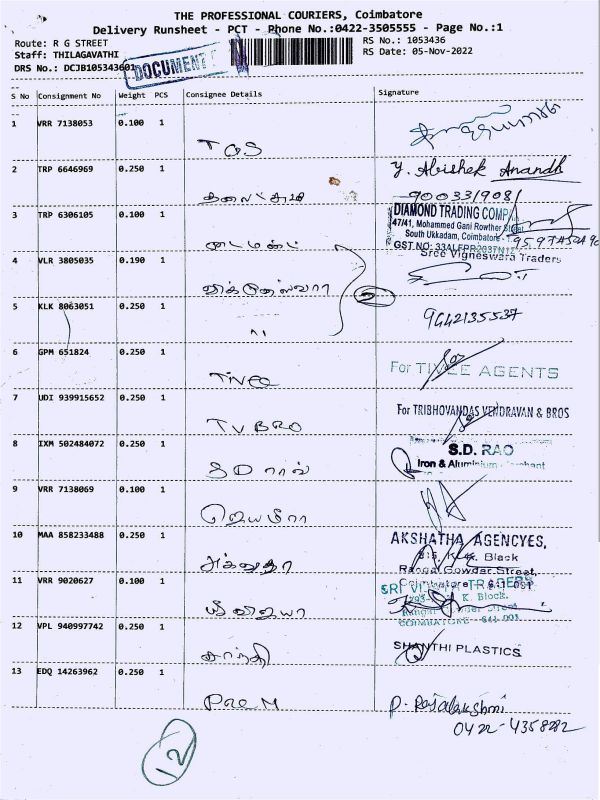 THE PROFESSIONAL COURIERS, Coimbatore
Delivery Runsheet - PCT - Phone No.:0422-3505555 - Page No.:1
Route: R G STREET
Staff: THILAGAVATHI
DRS No.: DCJB105343601
RS No.: 1053436
RS Date: 05-Nov-2022
DOCUMENT
S No Consignment No Weight PCS Consignee Details Signature
1 VRR 7138053 0.100 1
TGS
2 TRP 6646969 0.250 1 Y. Abishek Anandh
9003319081
3 TRP 6306105 0.100 1 DIAMOND TRADING COMPA
47/41, Mohammed Gani Rowther Street
South Ukkadam, Coimbatore
GST NO:
4 VLR 3805035 0.190 1 Sree Vigneswara Traders
விக்னேஸ்வரா
5 KLK 8063051 0.250 1 9442135537
"
6 GPM 651824 0.250 1 For TIVEE AGENTS
7 UDI 939915652 0.250 1 For TRIBHOVANDAS VENDRAVAN & BROS
TV BRO
8 IXM 502484072 0.250 1 S.D. RAO
Iron & Aluminium
SD ராவ்
9 VRR 7138069 0.100 1
10 MAA 858233488 0.250 1 AKSHATHA AGENCYES,
Black
Rangai Gowder Street,
Coimbatore - 641 001
11 VRR 9020627 0.100 1 SRI TRADERS
K. Block.
COIMBATORE - 641 001
12 VPL 940997742 0.250 1 SHANTHI PLASTICS
சாந்தி
13 EDQ 14263962 0.250 1 P. Rajalakshmi
Prem 0422-4358282
12